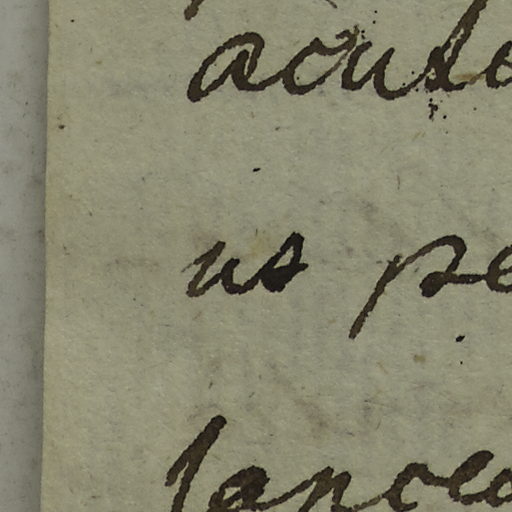 acute
us pe
lanceo